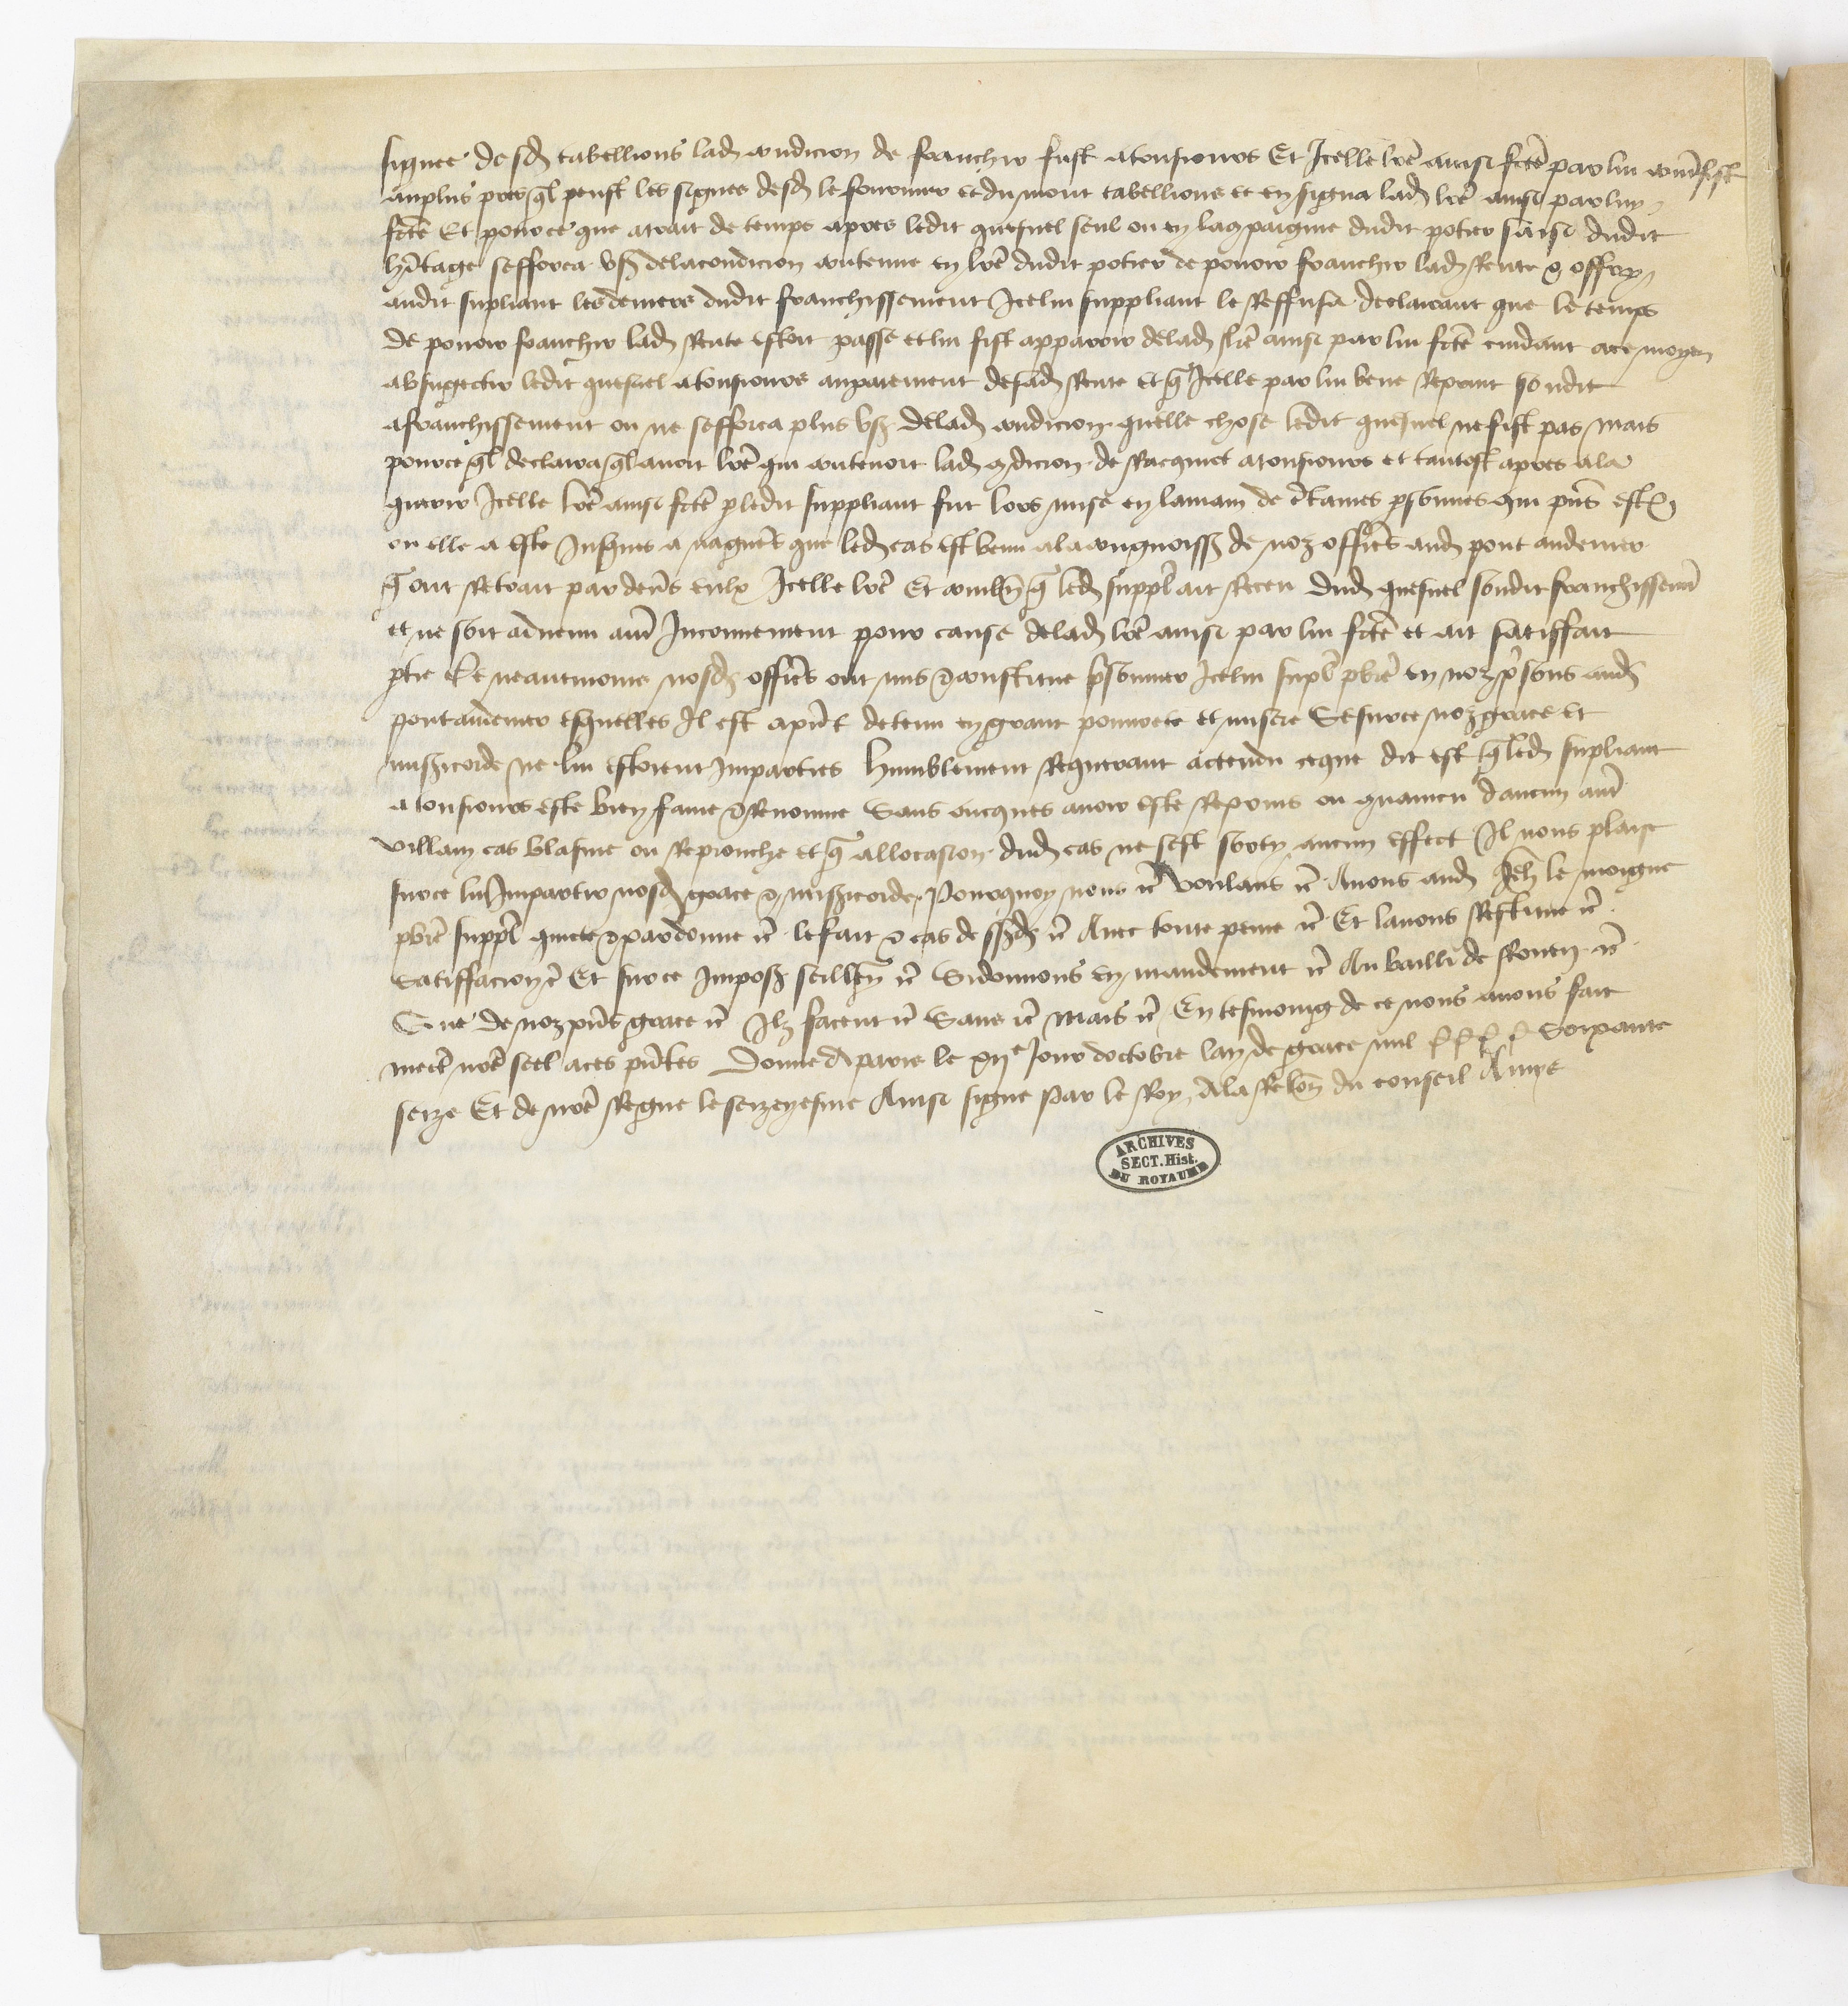 signee desd tabellions lad condicion de franchir fust atousiours Et Icelle lre ainsi fcte par lui contrefist
au plus pres ql peust les signes desd le fournier et du mont tabellions et en signa lad lre ainsi par luy
fcte Et pource que atrait de temps apres ledit quesnel seul ou en la compaignie dudit potier saisi dudit
hitage sefforca usr de la condicion contenue en lre dudit potier de povoir franchir lad Rente & offry
audit supliant les deniers dudit franchissement Icelui suppliant le Reffusa declairant que le temps
de povoir franchir lad Rente estoit passe et lui fist apparoir de lad lre ainsi par lui fcte cuidant ace moyen
absugectir ledit quesnel atousiours au paiement de sad Rente et q Icelle par lui veue Reprint sondit
afranchissement ou ne sefforca plus usr de lad condicion quelle chose ledit quesnel ne fist pas mais
pource ql declaira ql avoit lre qui contenoit lad condicion de Racquict atousiours et tantost apres ala
querir Icelle lre ainsi fcte p ledit suppliant fut lors mise en la main de certaines psonnes qui pns est
ou elle a este Jusques a nagueres que led cas est venu a la congnoiss de noz offices aud pont audemer
q ont Retrait par devs eulx Icelle lre Et combn q led suppl ait Receu dud quesnel sondit franchissemt
et ne soit advenu aucun Inconvenient pour cause de lad lre ainsi par lui fcte et ait satiffait
ptie Ce neantmoins nosd offices ont mis & constitue prisonnier Icelui supl pbre en noz prisons aud
pontaudemer esquelles Il est apnt detenu en grant povrete et misere Se surce noz grace et
misericorde ne lui estoient Imparties humblement Requerant actendu ceque dit est q led supliant
atousiours este bien fame & Renomme Sans oncques avoir este Reprins ou actaint daucun autre
villain cas blasme ou Reprouche et q allocasion dud cas ne sest sorty aucun effect Il nous plaise
surce lui Impartir nosd grace & misericorde Pourquoy nous ic voulans ic Avons aud Jeh le moigne
pbre suppl quicte & pardonne ic le fait & cas dessusd ic Avec toute peine ic Et lavons Restitue ic
Satiffacion ic Et surce Imposr scillence ic Si donnons en mandement ic Au bailli de Rouen ic
Que de noz pns grace ic Ilz facent ic Sans ic Mais ic En tesmoing de ce nous avons fait
mectre nre seel aces pntes Donne A paris le xiie Jour doctobre lan de grace mil cccc soixante
seize Et de nre Regne le seizeyesme Ainsi signe Par le Roy Ala Relon du conseil Amye
ARCHIVES
SECT. Hist.
DU ROYAUME